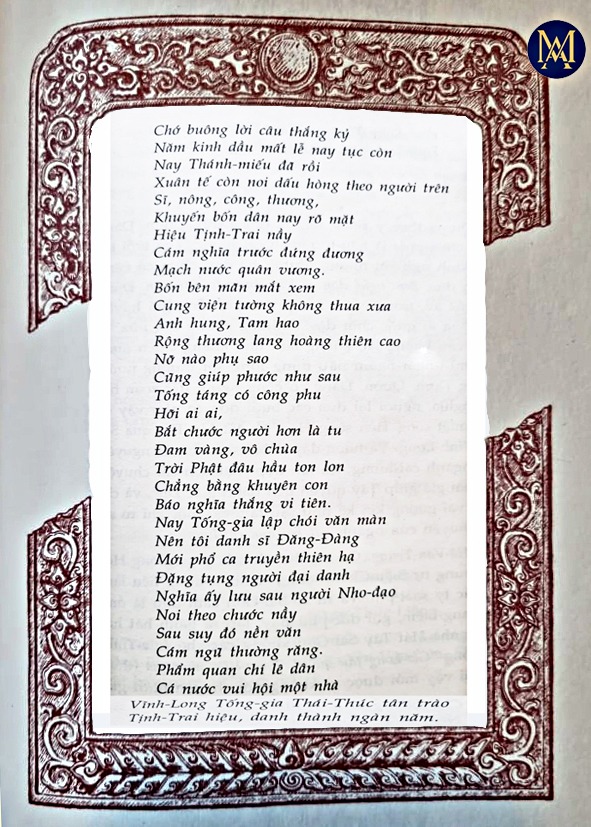 MA
Chớ buông lời câu thắng ký
Năm kinh dầu mất lễ nay tục còn
Nay Thánh-miếu đã rồi
Xuân tế còn noi dấu hòng theo người trên
Sĩ, nông, công, thương,
Khuyến bốn dân nay rõ mặt
Hiệu Tịnh-Trai nầy
Cám nghĩa trước đứng đương
Mạch nước quân vương.
Bốn bên mãn mắt xem
Cung viện tường không thua xưa
Anh hung, Tam hao
Rộng thương lang hoàng thiên cao
Nỡ nào phụ sao
Cũng giúp phước như sau
Tống táng có công phu
Hỡi ai ai,
Bắt chước người hơn là tu
Đam vàng, vô chùa
Trời Phật đâu hầu ton lon
Chẳng bằng khuyên con
Báo nghĩa thắng vi tiên.
Nay Tống-gia lập chói văn màn
Nên tôi danh sĩ Đăng-Đàng
Mới phổ ca truyền thiên hạ
Đặng tụng người đại danh
Nghĩa ấy lưu sau người Nho-đạo
Noi theo chước nầy
Sau suy đó nền văn
Cám ngũ thường răng.
Phẩm quan chí lê dân
Cả nước vui hội một nhà
Vĩnh-Long Tống-gia Thái-Thúc tân trào
Tịnh-Trai hiệu, danh thành ngàn năm.